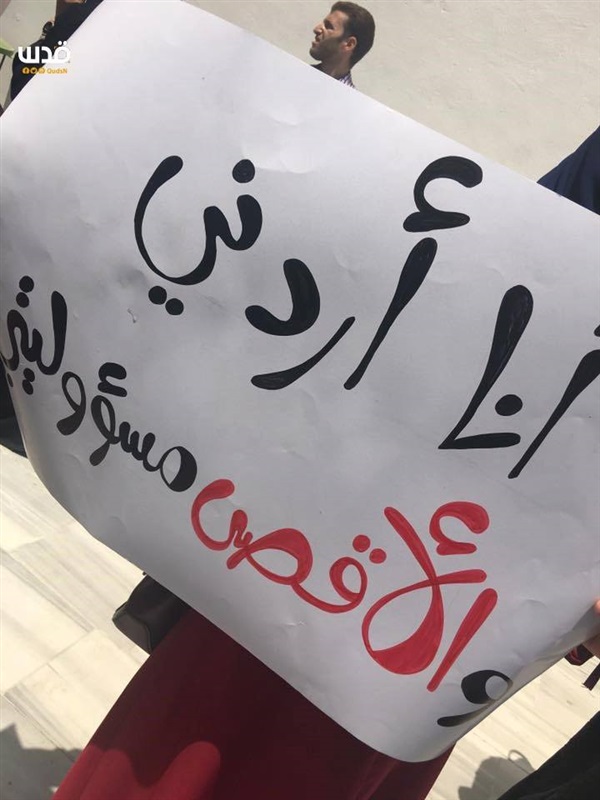 قدس
Quds N
أنا أردني
والأقصى مسؤوليتي